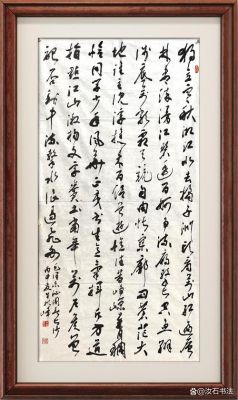 独立寒秋湘江北去橘子洲头看万山红遍层
林尽染漫江碧透百舸争流鹰击长空鱼翔
浅底万类霜天竞自由怅寥廓问苍茫大
地谁主沉浮携来百侣曾游忆往昔峥嵘岁月稠
恰同学少年风华正茂书生意气挥斥方遒
指点江山激扬文字粪土当年万户侯曾
记否到中流击水浪遏飞舟
毛泽东沁园春长沙
丙申夏
@汝石书法